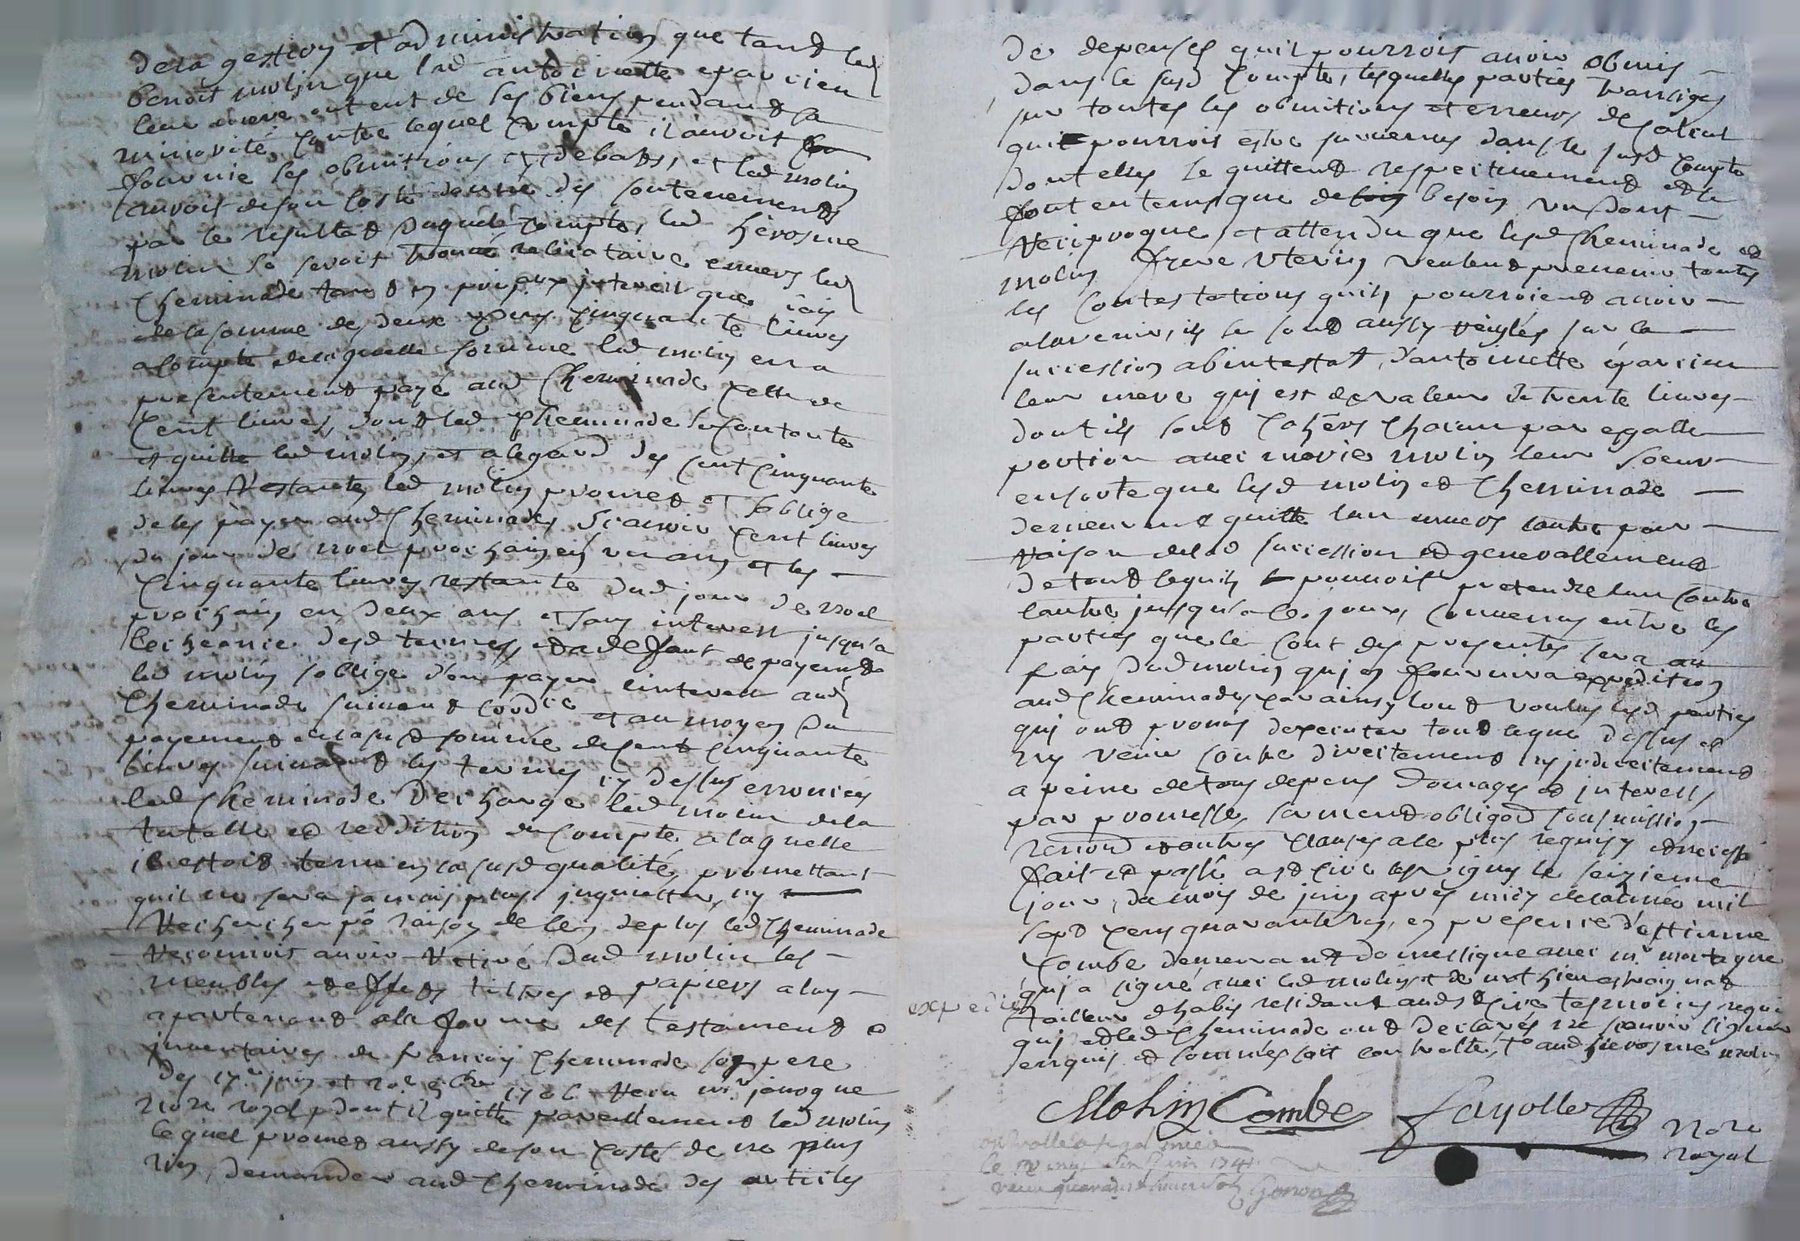 de la gestion et administration que tand led
benoit molin que lad antoinette eparcieu
leur mere ont eut de ses biens pendand sa
minorité contre lequel compte il auroit
fournie ses obmitions et debats, et led molin
auroit de son costé donné des soutenements
par le resultat duquel compte, led hérosme
molin se seroit trouvé reliquataire envers led
Cheminade tant en principaux interest que
de la somme de deux cens cinquante livres
a compte de laquelle somme led molin en a
presentement payé aud Cheminade celle de
cent livres, dont led Cheminade se contente
et quitte led molin, et a legard des cent cinquante
livres restante led molin promet et soblige
de les payer aud Cheminade, scavoir cent livres
du jour de noel prochain en un an et les
cinquante livres restante dud jour de noel
prochain en deux ans et sans interest jusqu'a
lecheance desd termes, et a defaut de payement
led molin soblige d'en payer linterest aud
Cheminade suivant lordce et au moyen du
payement de la susd somme de cent cinquante
livres suivand les termes cy dessus enoncés
led Cheminade decharge led molin de la
tutelle et reddition de compte a laquelle
il estoit tenu en sa susd qualité, promettant
quil ne sera jamais plus inquietter, ny
rechercher pr raison de ce, de plus led Cheminade
reconnoit avoir retiré dud molin les
meubles et effets tiltres et papiers a luy
apartenand a la forme des testament et
inventaires de francois Cheminade son pere
des 17e juin et 20e Xbre 1726 receu mr jouogne
nore royal, dont il quitte pareillement led molin
lequel promet aussy de son costé de ne plus
rien demander aud Cheminade des articles
de depenses quil pourroit avoir obmis
dans le susd compte, lesquelles parties transiges
sur toutes les obmitions et erreurs de calcul
qui pourroit estre survenus dans le susd compte
dont elles se quittent respectivement et se
font en temps que de besoin un dont
reciproque, et attendu que lesd Cheminade et
molin frere uterin veulent prevenir toutes
les contestations quils pourroient avoir
a lavenir, ils se sont aussy réglés sur la
succession abintestat, dantoinette eparcieu
leur mere qui est de valeur de trente livres
dont ils sont cohers chacun par egalle
portion avec marie molin leur soeur
en sorte que lesd molin et Cheminade
demeurent quitte lun envers lautre pour
raison de lad succession et generallement
de tout ce quils pouroit pretendre lun contre
lautre jusqua ce jour, convenus entre les
parties que le cout des presentes sera au
frais dud molin qui en fournira expedition
aud Cheminade, car ainsy lont voulus lesd parties
qui ont promis dexecuter tout ce que dessus et
ny venir contre directement ny indirectement
a peine de tous depens domages et interests
par promesse, serment obligaon soumission
renon et autres clauses a ce plus requis et necesse
fait et passé a st Cire les vignes le seizieme
jour du mois de juin apres midi de lannée mil
sept cens quarante un, en presence d'estienne
Combe demeurant domestique avec mr
qui a signé avec led molin et de mathieu
tailleur dhabis residant aud st Cire tesmoins requis
qui et led Cheminade ont declarés ne scavoir signer
enquis et sommés soit controllé, to aud hierosme molin
expedié
Molin Combe fayolle
Nore
royal